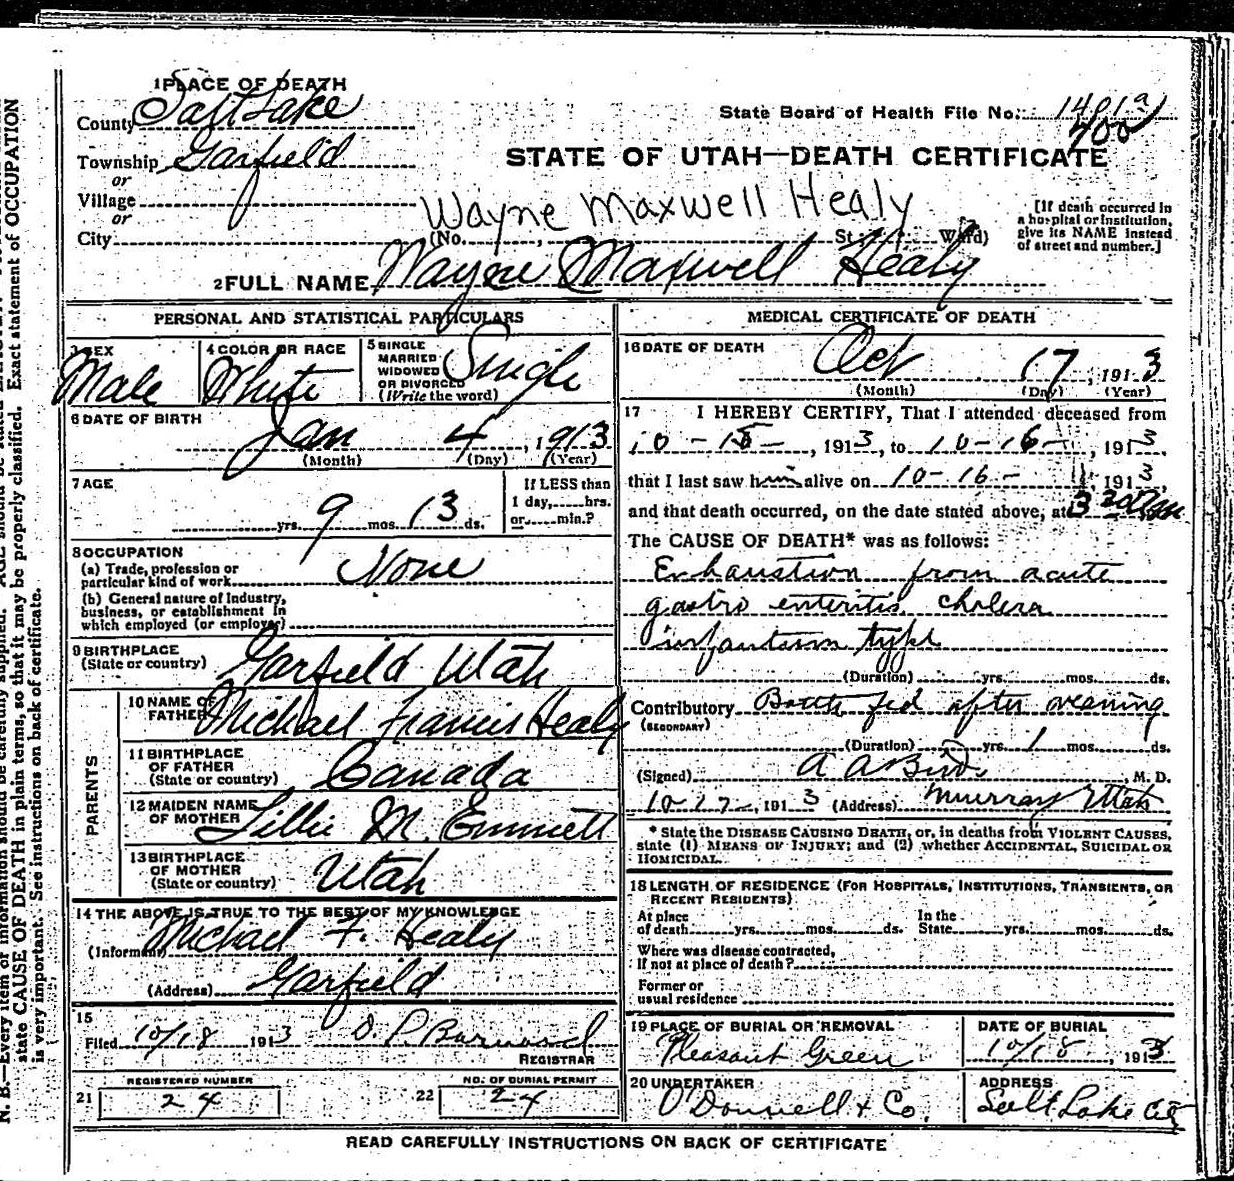 1 PLACE OF DEATH
County Salt Lake
Township Garfield
or
Village
or
City
State Board of Health File No. 1401a
400
STATE OF UTAH—DEATH CERTIFICATE
Wayne Maxwell Healy
(No. , St.; Ward)
[If death occurred in
a hospital or institution,
give its NAME instead
of street and number.]
2 FULL NAME Wayne Maxwell Healy
PERSONAL AND STATISTICAL PARTICULARS
3 SEX
Male
4 COLOR OR RACE
White
5 SINGLE
MARRIED
WIDOWED
OR DIVORCED
(Write the word)
Single
6 DATE OF BIRTH
Jan 4, 1913
(Month) (Day) (Year)
7 AGE
yrs. 9 mos. 13 ds.
If LESS than
1 day, hrs.
or min.?
8 OCCUPATION
(a) Trade, profession or
particular kind of work None
(b) General nature of industry,
business, or establishment in
which employed (or employer)
9 BIRTHPLACE
(State or country) Garfield Utah
PARENTS
10 NAME OF
FATHER Michael Francis Healy
11 BIRTHPLACE
OF FATHER
(State or country) Canada
12 MAIDEN NAME
OF MOTHER Lillie M. Emmett
13 BIRTHPLACE
OF MOTHER
(State or country) Utah
14 THE ABOVE IS TRUE TO THE BEST OF MY KNOWLEDGE
(Informant) Michael F. Healy
(Address) Garfield
15
Filed 10/18 1913 O. P. Barnard
REGISTRAR
REGISTERED NUMBER
21 24
NO. OF BURIAL PERMIT
22 24
MEDICAL CERTIFICATE OF DEATH
16 DATE OF DEATH
Oct 17, 1913
(Month) (Day) (Year)
17 I HEREBY CERTIFY, That I attended deceased from
10-15-, 1913, to 10-16-, 1913,
that I last saw him alive on 10-16-, 1913,
and that death occurred, on the date stated above, at 3 30 am
The CAUSE OF DEATH* was as follows:
Exhaustion from acute
gastro enteritis cholera
infantum type
(Duration) yrs. mos. ds.
Contributory Bottle fed after weaning
(SECONDARY)
(Duration) yrs. 1 mos. ds.
(Signed) A A Bird, M. D.
10-17-, 1913 (Address) Murray Utah
* State the DISEASE CAUSING DEATH, or, in deaths from VIOLENT CAUSES,
state (1) MEANS OF INJURY; and (2) whether ACCIDENTAL, SUICIDAL OR
HOMICIDAL.
18 LENGTH OF RESIDENCE (FOR HOSPITALS, INSTITUTIONS, TRANSIENTS, OR
RECENT RESIDENTS)
At place In the
of death yrs. mos. ds. State yrs. mos. ds.
Where was disease contracted,
If not at place of death?
Former or
usual residence
19 PLACE OF BURIAL OR REMOVAL
Pleasant Green
DATE OF BURIAL
10/18, 1913
20 UNDERTAKER
O'Donnell & Co.
ADDRESS
Salt Lake City
READ CAREFULLY INSTRUCTIONS ON BACK OF CERTIFICATE
N. B.—Every item of information should be carefully supplied. AGE should be stated
state CAUSE OF DEATH in plain terms, so that it may be properly classified. Exact statement of OCCUPATION
is very important. See instructions on back of certificate.